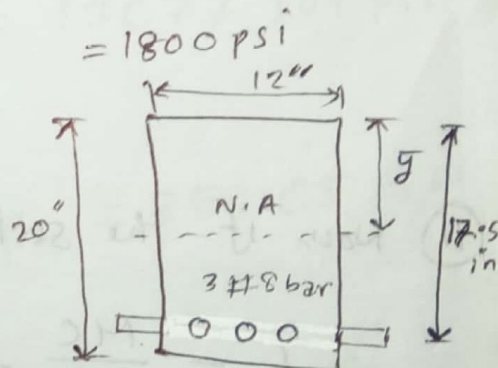 = 1800 psi
12"
20"
N.A
ȳ
17.5
in
3 #8 bar